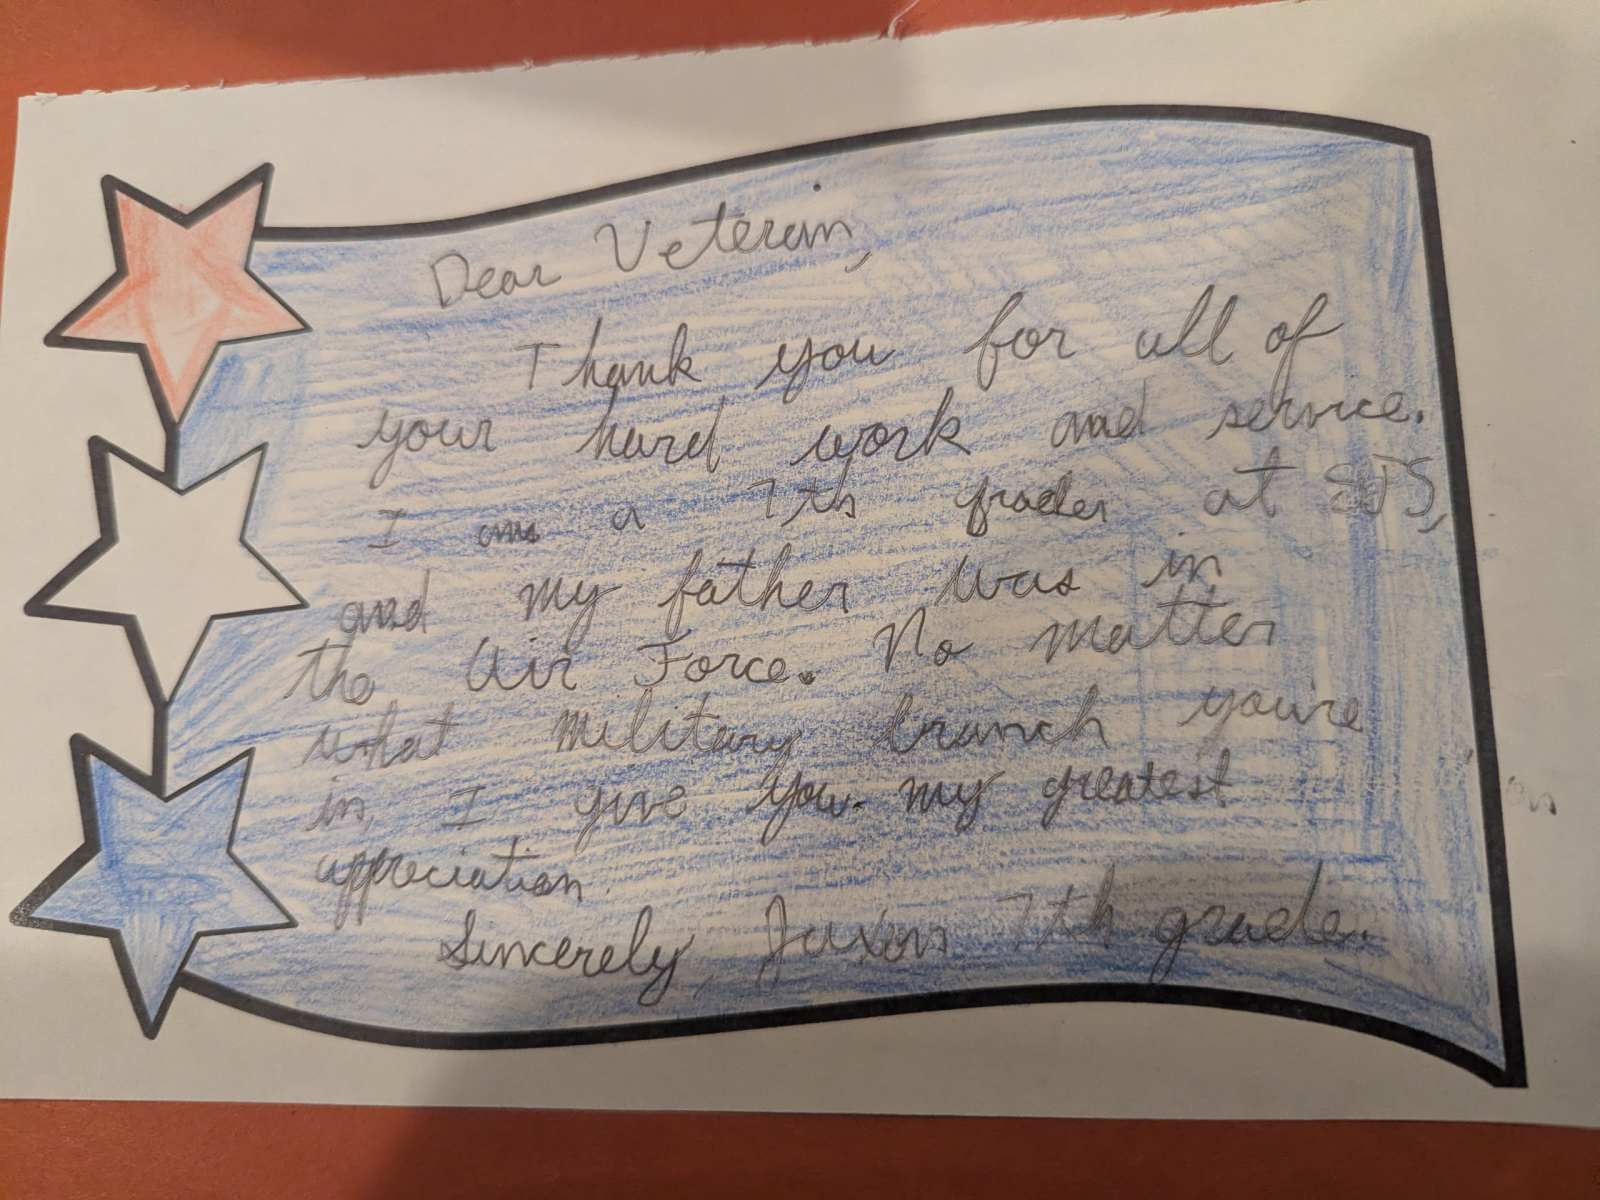 Dear Veteran,
Thank you for all of
your hard work and service.
I am a 7th grader at SJS,
and my father was in
the Air Force. No matter
what military branch you're
in, I give you my greatest
appreciation.
Sincerely, Jaxon 7th grade.